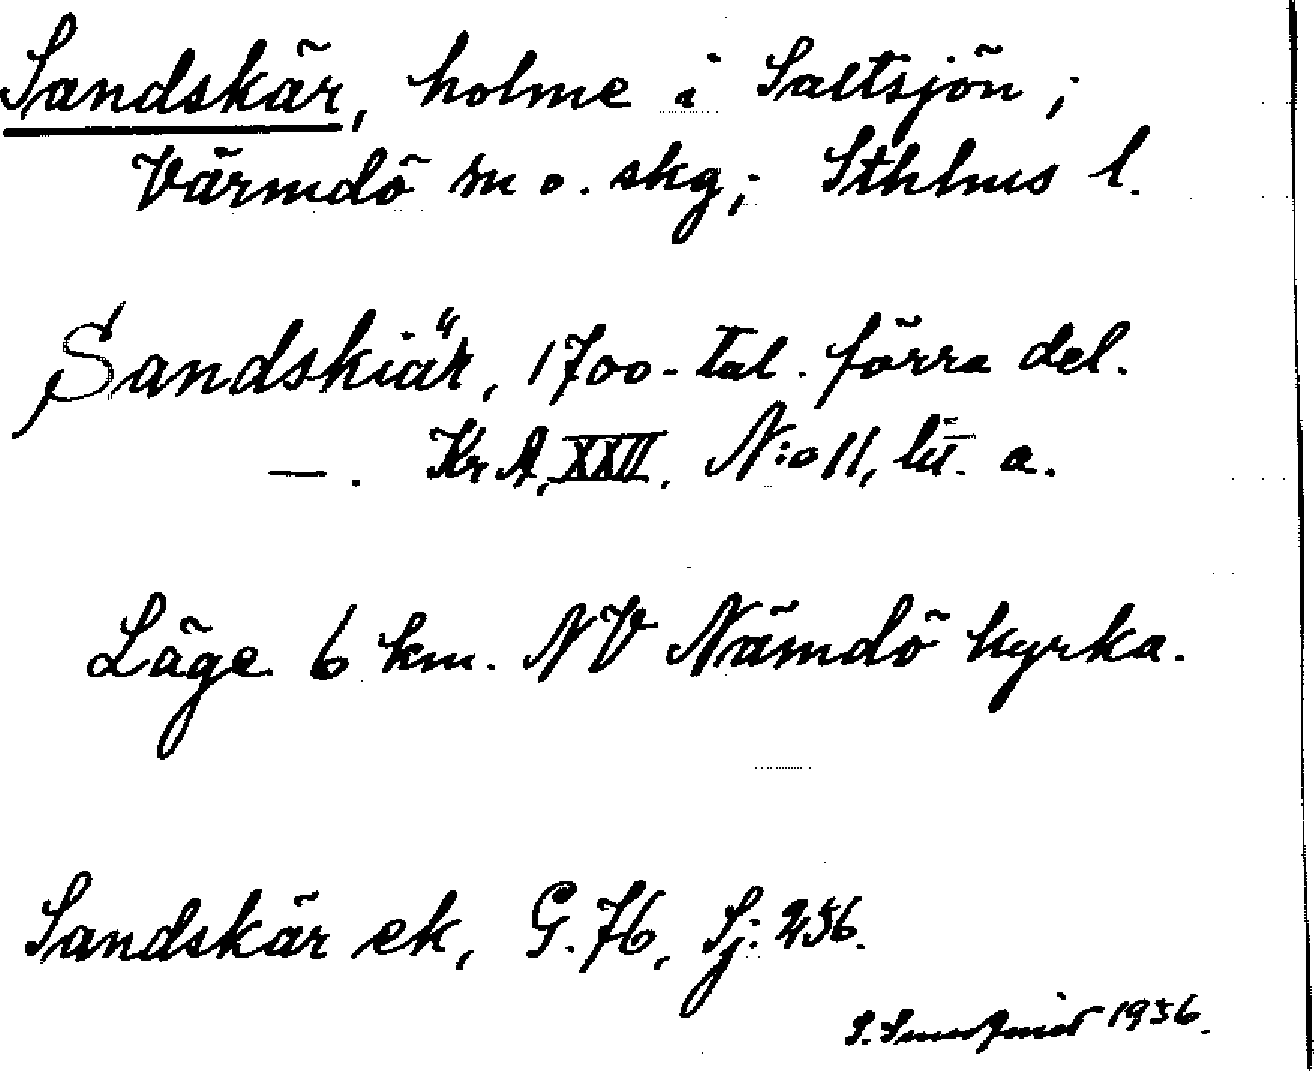 Sandskär, holme i Saltsjön;
Värmdö sn o. skg; Sthlms l.
Sandskiär, 1700-tal. förra del.
—. Kr A, XXII. N:o 11, litt. a.
Läge 6 km. NV Nämdö kyrka.
Sandskär ek, G. 76, Sj: 236.
1936.